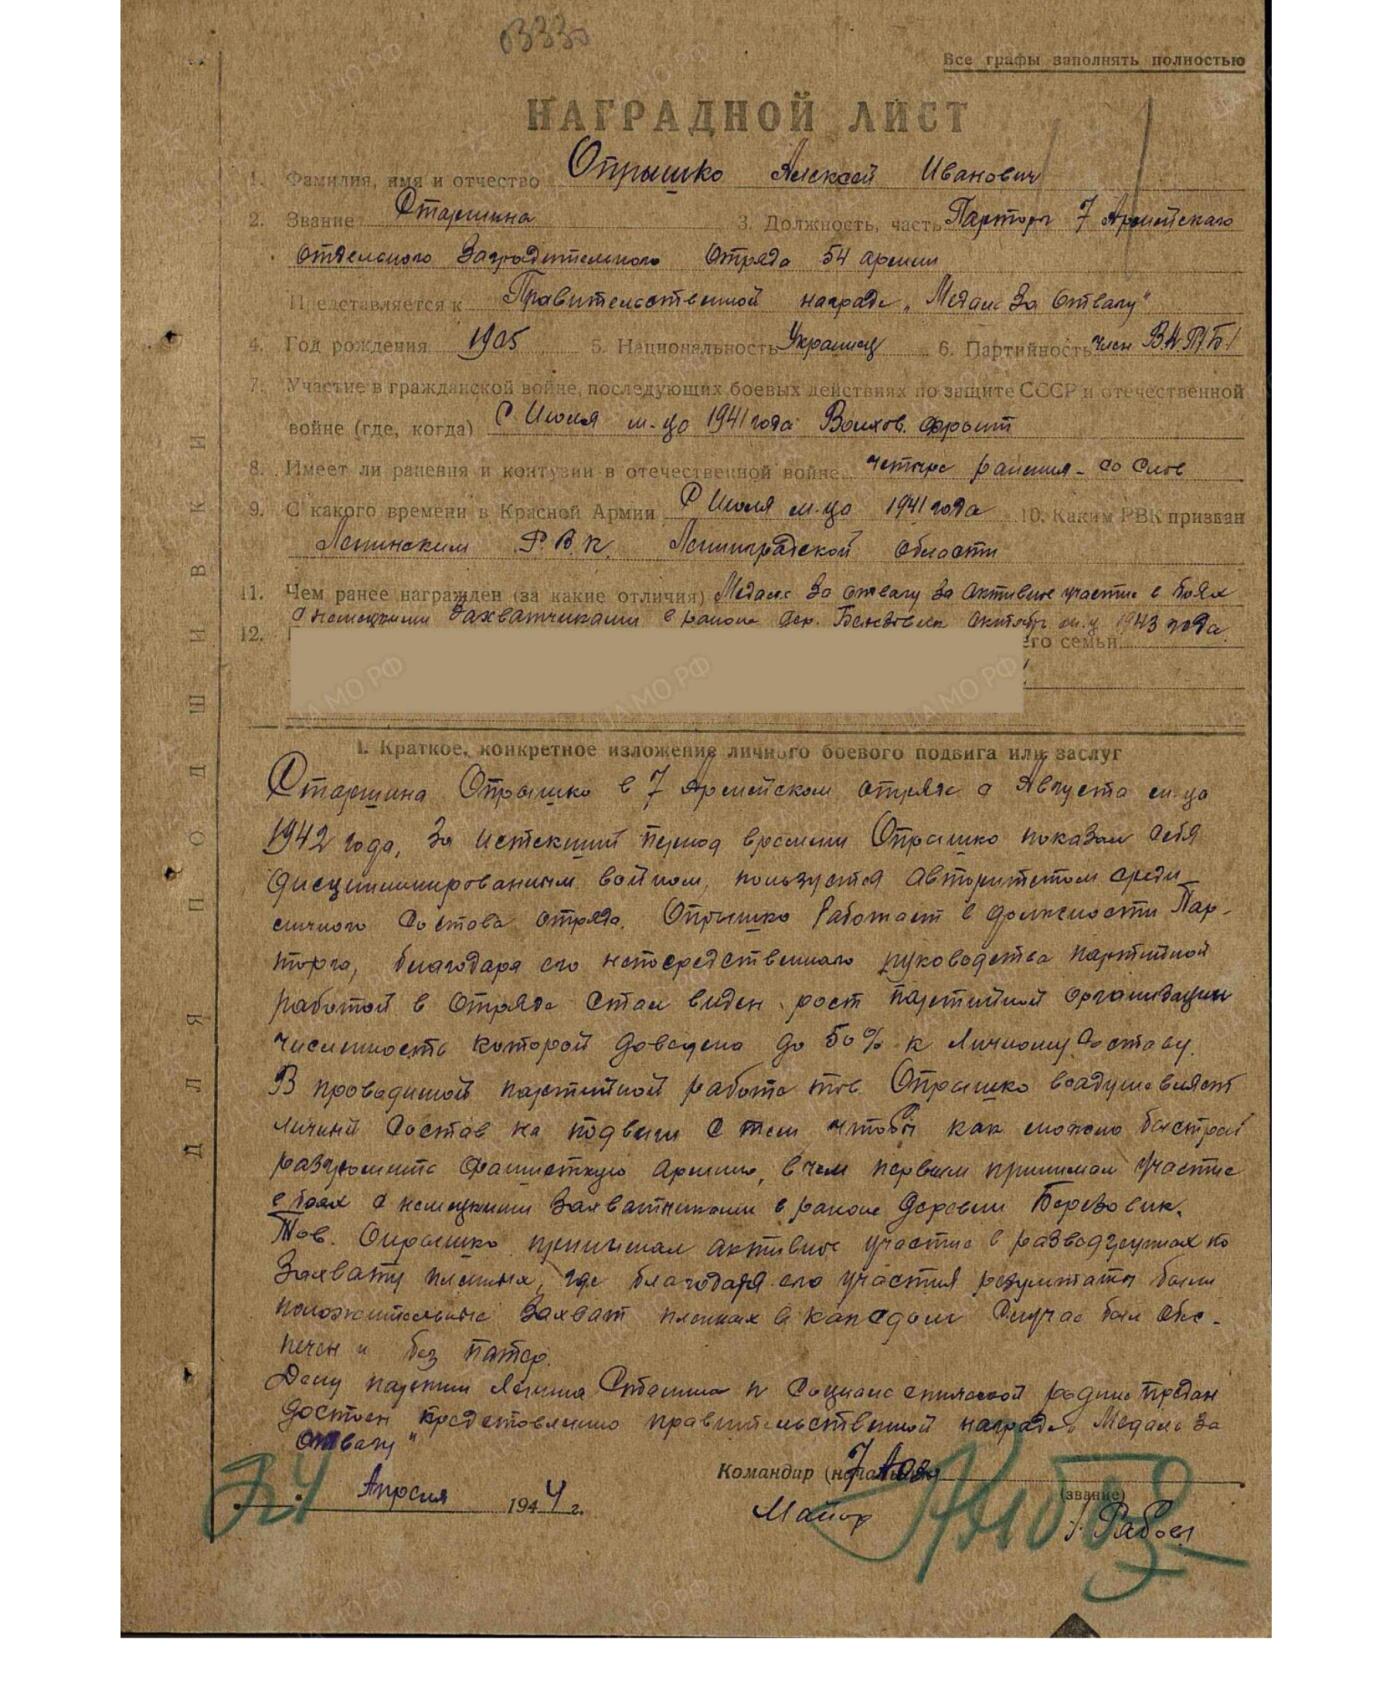 3330
Все графы заполнять полностью
НАГРАДНОЙ ЛИСТ
1. Фамилия, имя и отчество Опрышко Алексей Иванович
2. Звание Старшина 3. Должность, часть Парторг 7 Армейского
отдельного Заградительного Отряда 54 армии
Представляется к Правительственной награде „Медаль За Отвагу"
4. Год рождения 1905 5. Национальность Украинец 6. Партийность член ВКП/Б/
7. Участие в гражданской войне, последующих боевых действиях по защите СССР и отечественной
войне (где, когда) С Июля м-ца 1941 года Волхов. фронт
8. Имеет ли ранения и контузии в отечественной войне четыре ранения - со слов
9. С какого времени в Красной Армии С Июля м-ца 1941 года 10. Каким РВК призван
Ленинским Р.В.К. Ленинградской области
11. Чем ранее награжден (за какие отличия) Медаль За отвагу За Активное участие в боях
с немецкими Захватчиками в районе дер. Октябрь м-ц 1943 года
12. его семьи
ДЛЯ ПОДШИВКИ
I. Краткое, конкретное изложение личного боевого подвига или заслуг
Старшина Опрышко в 7 Армейском отряде с Августа м-ца
1942 года, За истекший период времени Опрышко показал себя
дисциплинированным войном, пользуется авторитетом среди
личного состава отряда. Опрышко Работает в должности Пар-
торга, благодаря его непосредственного руководства партийной
работой в Отряде стал виден рост партийной организации
численность которой доведена до 50% к Личному Составу.
В проводимой партийной работе тов. Опрышко воодушевляет
личный состав на подвиги с тем чтобы как можно быстрей
разгромить фашисткую армию, в чем первым принимал участие
в боях с немецкими Захватчиками в районе деревни Березовик.
Тов. Опрышко принимал активное участие в разведгруппах по
Захвату пленных, где благодаря его участия результаты были
положительные Захват пленных в каждом Случае был обес-
печен и без потерь.
Делу партии Ленина Сталина и Социалистической родине предан
достоен предстовлению правительственной награде „Медаль За
отвагу"
24 Апреля 1944 г.
Командир (начальник) 7 Аоз
(звание)
Майор